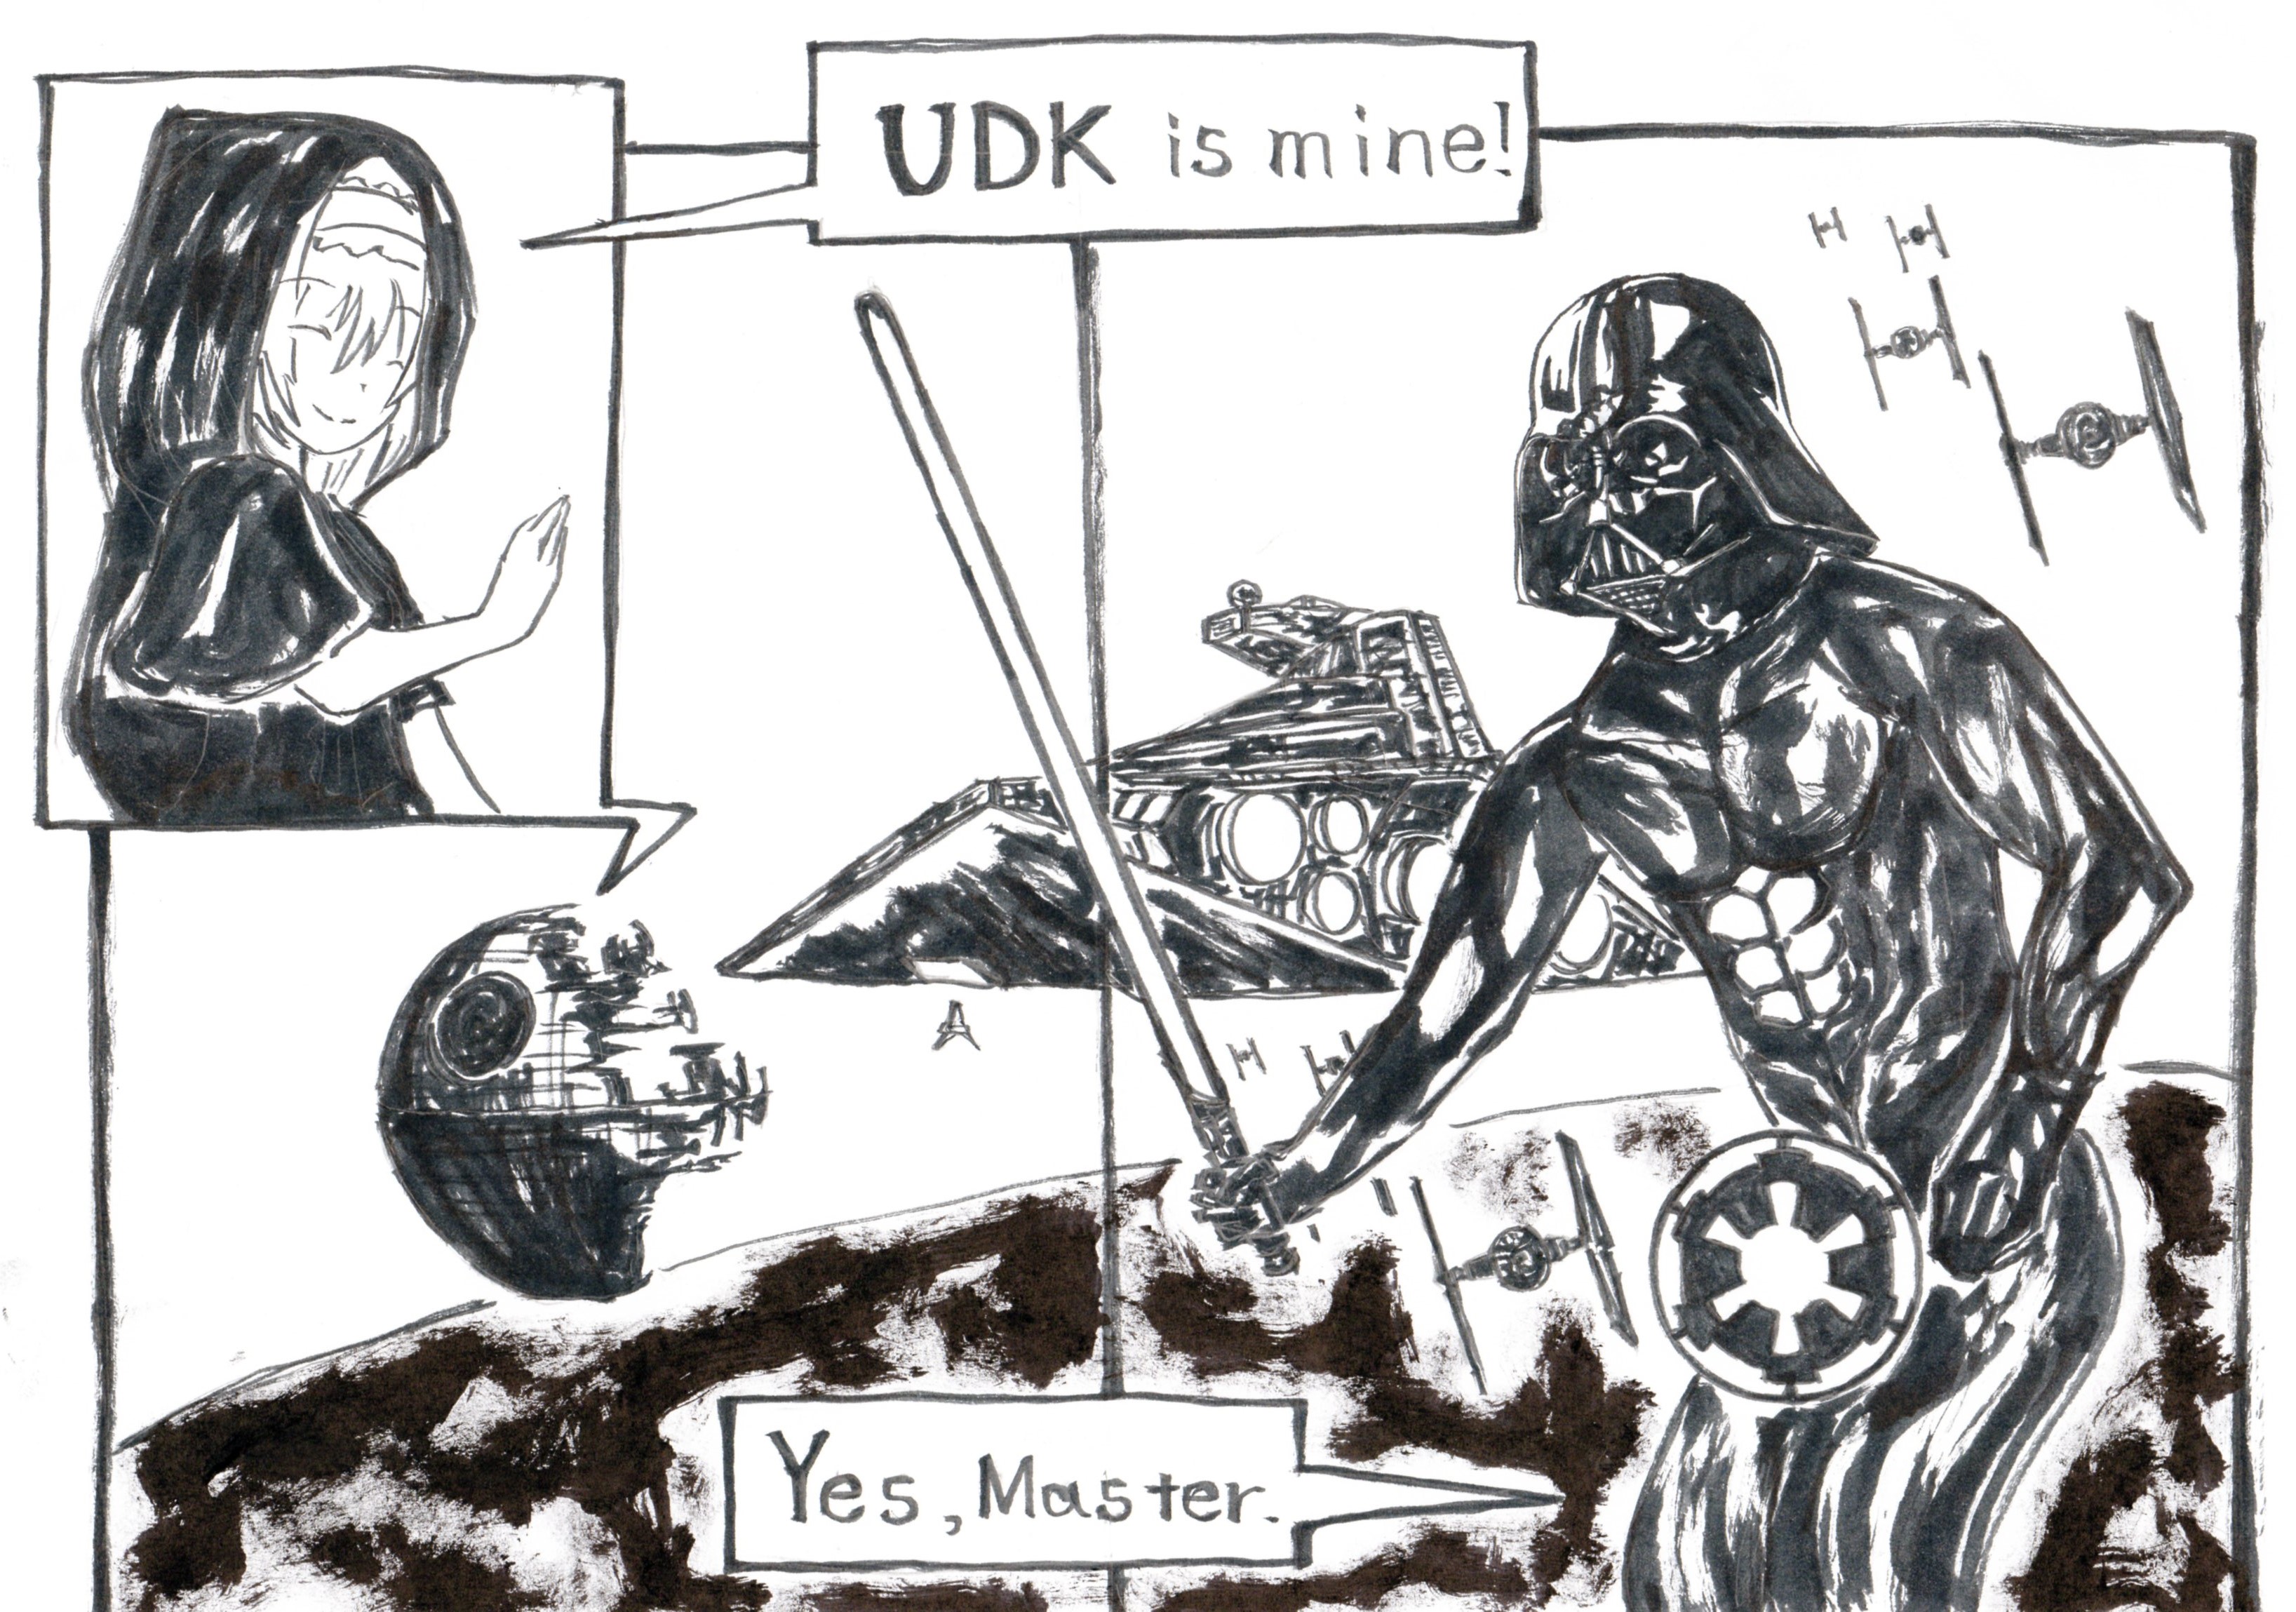 UDK is mine!
Yes, Master.